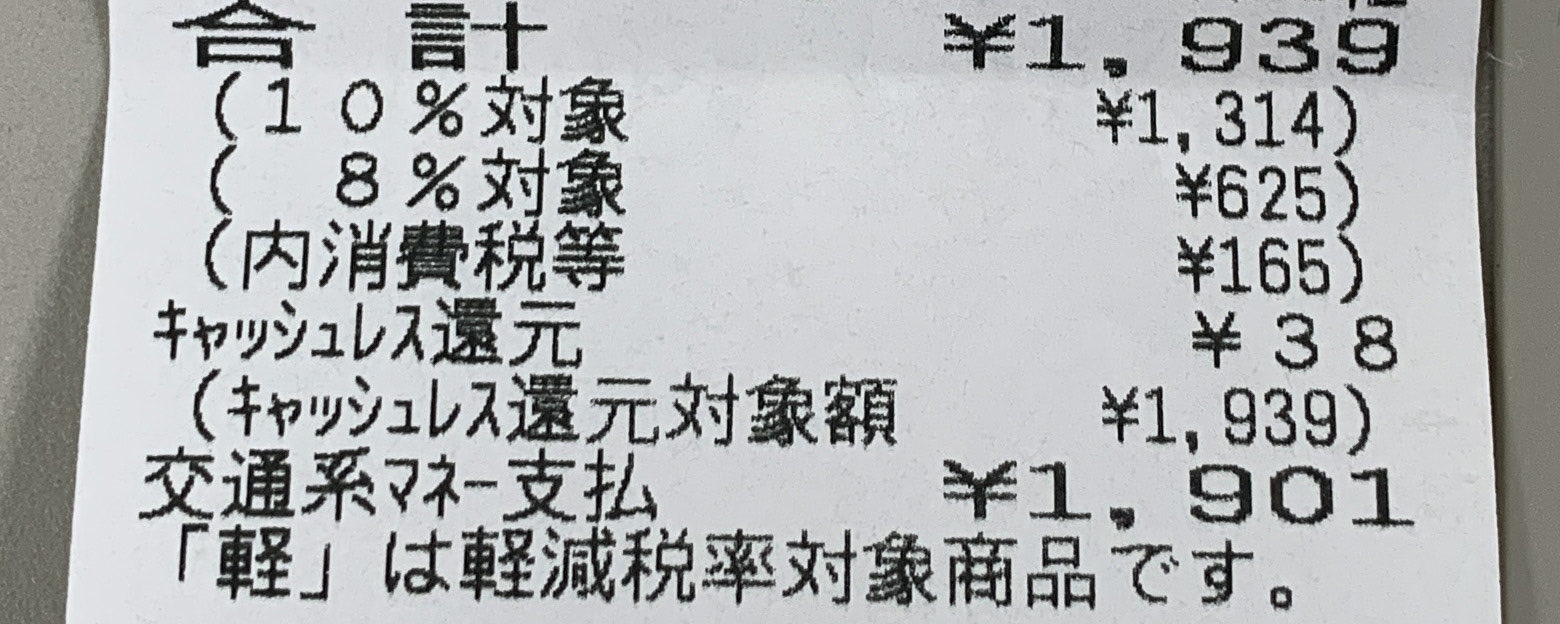 合 計 ¥1,939
(10%対象 ¥1,314)
( 8%対象 ¥625)
(内消費税等 ¥165)
ｷｬｯｼｭﾚｽ還元 ¥38
(ｷｬｯｼｭﾚｽ還元対象額 ¥1,939)
交通系ﾏﾈｰ支払 ¥1,901
「軽」は軽減税率対象商品です。